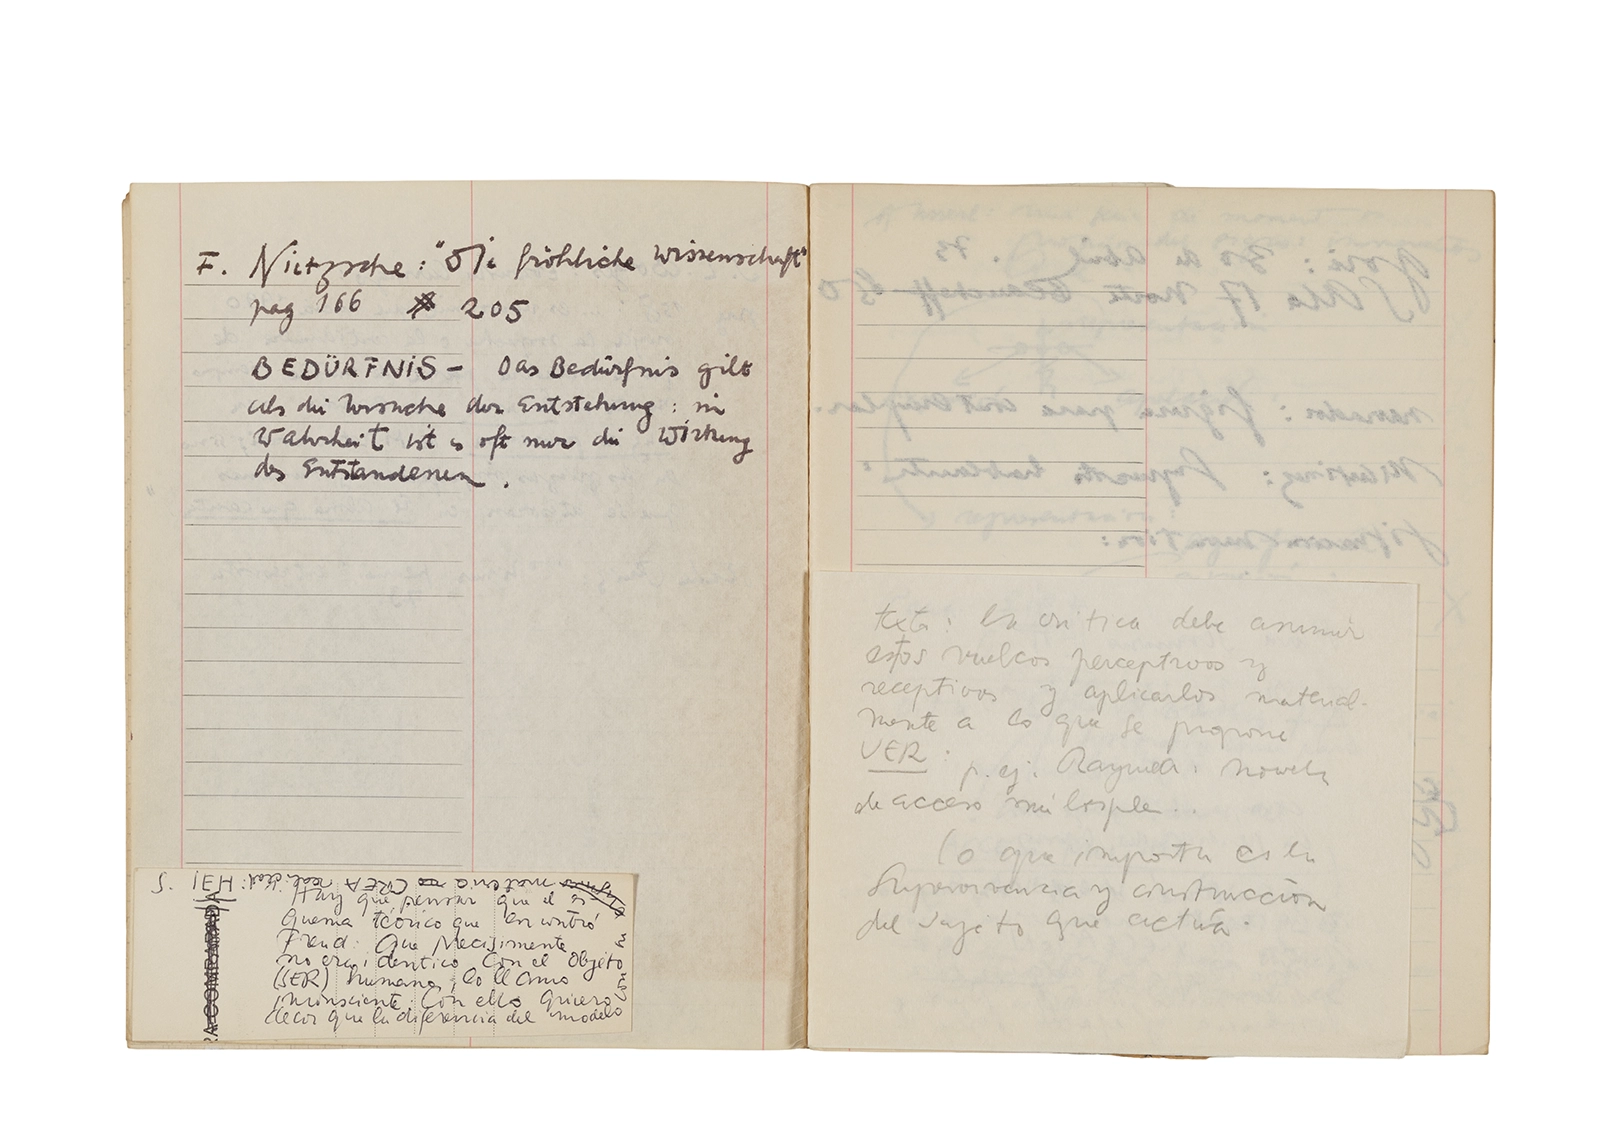 F. Nietzsche: "Die fröhliche Wissenschaft"
pag 166 205
BEDÜRFNIS – Das Bedürfnis gilt
als die Ursache der Entstehung: in
Wahrheit ist es oft nur die Wirkung
des Entstandenen.
S. ¡EH!: realidad CREA materia
Hay que pensar que el es
quema teórico que encontró
Freud: Que Precisimente
no era identico Con el Objeto
(SER) humano, lo llamo
inconsciente. Con ello quiero
decir que la diferencia del modelo
RA COMPARADA
texto: la critica debe asumir
estos vuelcos perceptivos y
receptivos y aplicarlos material-
mente a lo que se propone
VER: p. ej. Rayuela: novela
de acceso múltiple...
Lo que importa es la
Supervivencia y construcción
del sujeto que actúa.
: 30 de Abril . 73
17 Norte
: figura para contemplar.
: